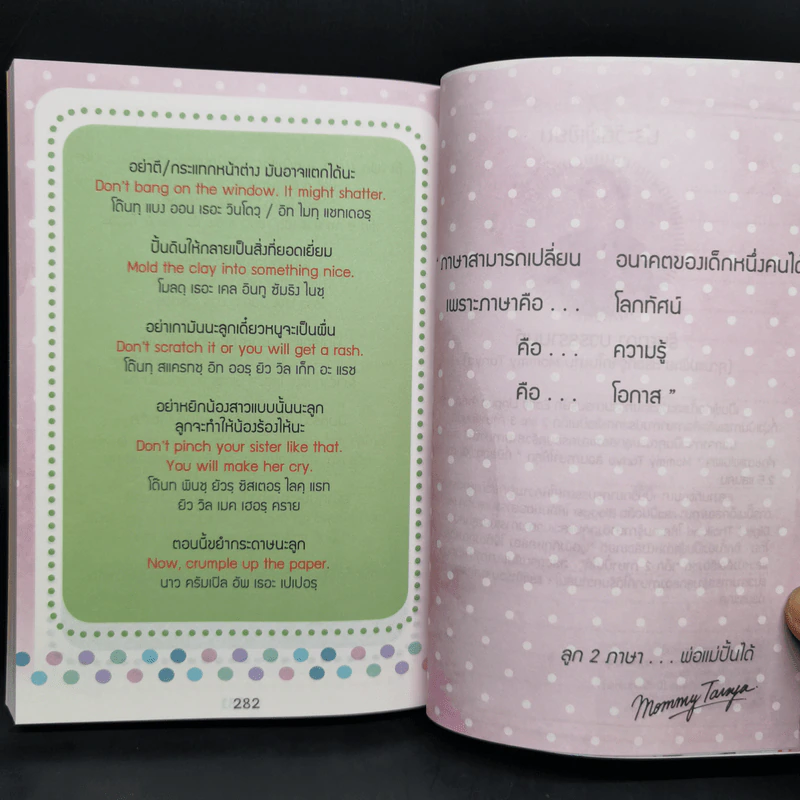 อย่าตี/กระแทกหน้าต่าง มันอาจแตกได้นะ
Don't bang on the window. It might shatter.
โด๊นทฺ แบง ออน เธอะ วินโดวฺ / อิท ไมทฺ แชทเตอรฺ
ปั้นดินให้กลายเป็นสิ่งที่ยอดเยี่ยม
Mold the clay into something nice.
โมลดฺ เธอะ เคล อินทู ซัมธิง ไนซฺ
อย่าเกามันนะลูกเดี๋ยวหนูจะเป็นผื่น
Don't scratch it or you will get a rash.
โด๊นทฺ สแครทชฺ อิท ออรฺ ยิว วิล เก็ท อะ แรช
อย่าหยิกน้องสาวแบบนั้นนะลูก
ลูกจะทำให้น้องร้องไห้นะ
Don't pinch your sister like that.
You will make her cry.
โด๊นท พินชฺ ยัวรฺ ซิสเตอรฺ ไลคฺ แธท
ยิว วิล เมค เฮอรฺ คราย
ตอนนี้ขยำกระดาษนะลูก
Now, crumple up the paper.
นาว ครัมเปิล อัพ เธอะ เปเปอรฺ
282
"ภาษาสามารถเปลี่ยน อนาคตของเด็กหนึ่งคนได้
เพราะภาษาคือ . . . โลกทัศน์
คือ . . . ความรู้
คือ . . . โอกาส "
ลูก 2 ภาษา . . . พ่อแม่ปั้นได้
Mommy Tanya